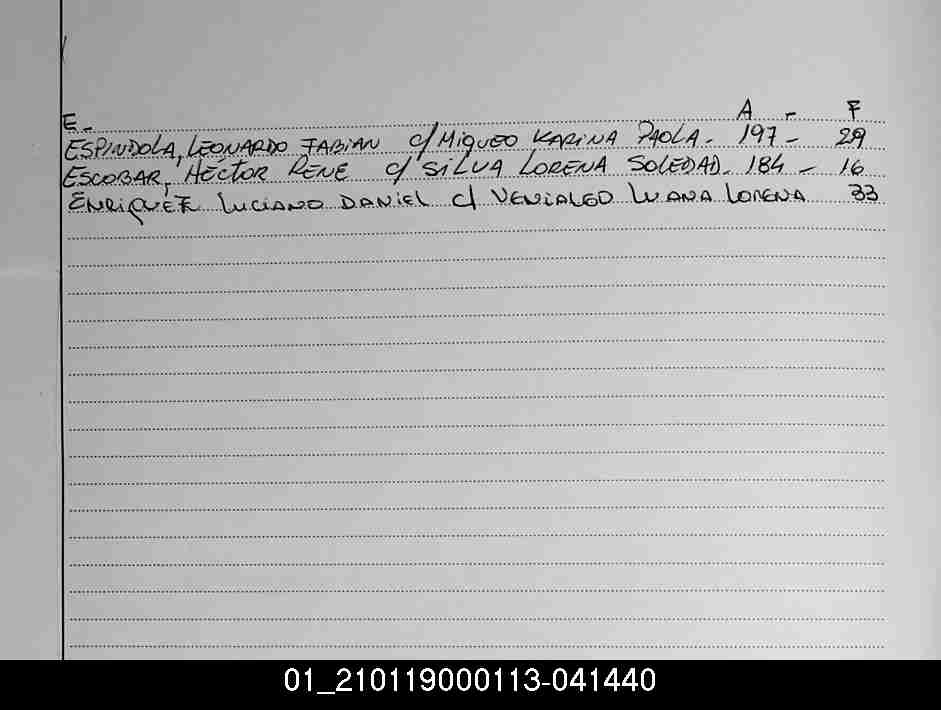 A - F
E-
ESPINDOLA, LEONARDO FABIAN c/ MIQUEO KARINA PAOLA - 197 - 29
ESCOBAR, HÉCTOR RENE c/ SILVA LORENA SOLEDAD - 184 - 16
ENRIQUEZ LUCIANO DANIEL c/ VENIALGO LUANA LORENA 33
01_210119000113-041440